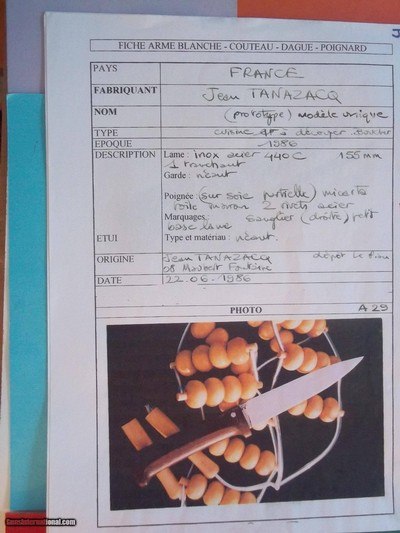 FICHE ARME BLANCHE - COUTEAU - DAGUE - POIGNARD
PAYS FRANCE
FABRIQUANT Jean TANAZACQ
NOM (prototype) modèle unique
TYPE à découper. Boucher
EPOQUE 1986
DESCRIPTION Lame : inox acier 440C 155 mm
1 tranchant
Garde : néant
Poignée (sur soie partielle) micarta
toile maron 2 rivets acier
Marquages, : sanglier (droite) petit
base lame
ETUI Type et matériau : néant.
ORIGINE Jean TANAZACQ dépôt
08 Maubert Fontaine
DATE 22.06.1986
PHOTO A 29
SwissInternational.com